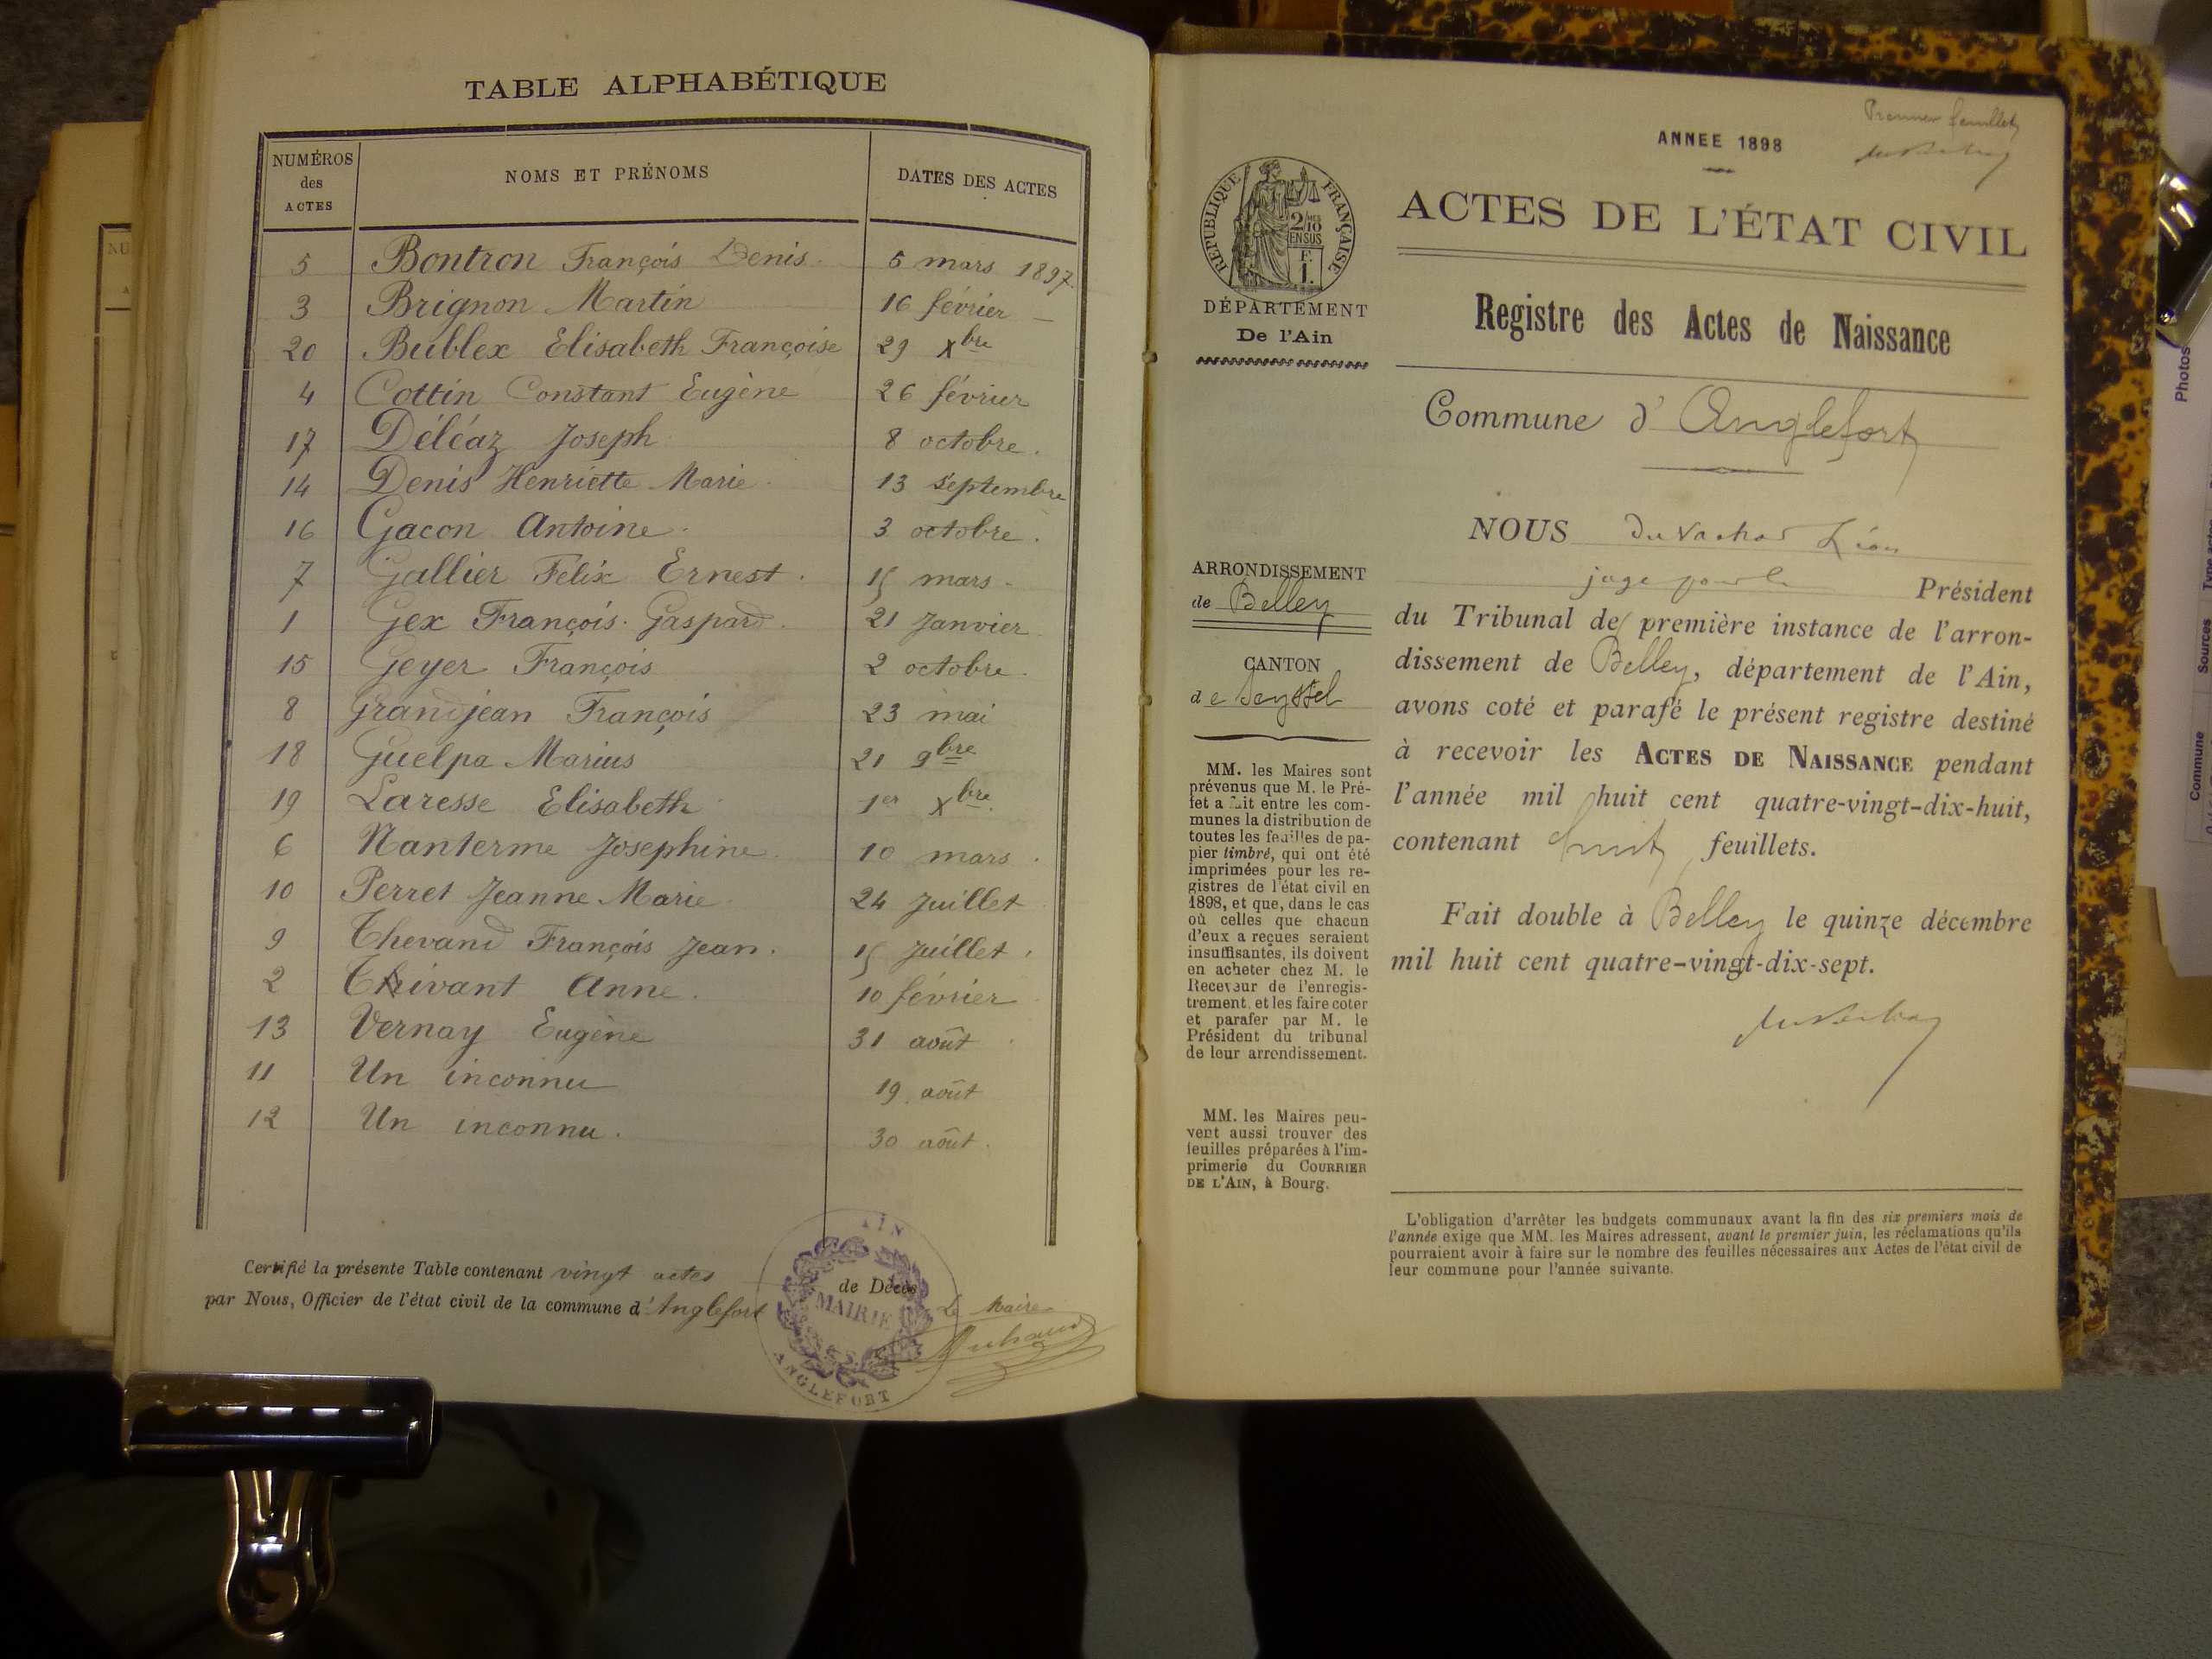 TABLE ALPHABÉTIQUE
NUMÉROS des ACTES NOMS ET PRÉNOMS DATES DES ACTES
5 Bontron François Denis. 5 mars 1897.
3 Brignon Martin 16 février –
20 Bublex Elisabeth Françoise 29 Xbre
4 Cottin Constant Eugène 26 février
17 Déléaz Joseph 8 octobre.
14 Denis Henriette Marie. 13 septembre
16 Gacon Antoine. 3 octobre.
7 Gallier Felix Ernest. 15 mars.
1 Gex François. Gaspard. 21 Janvier
15 Geyer François 2 octobre.
8 Grandjean François 23 mai
18 Guelpa Marius 21 9bre
19 Laresse Elisabeth 1er Xbre.
6 Nanterme Josephine. 10 mars.
10 Perret Jeanne Marie. 24 Juillet
9 Thevand François Jean. 15 Juillet.
2 Thivant Anne. 10 février
13 Vernay Eugène 31 août
11 Un inconnu 19 août
12 Un inconnu. 30 août.
Certifié la présente Table contenant vingt actes de Décès
par Nous, Officier de l'état civil de la commune d'Anglefort
Le Maire
AIN
MAIRIE
ANGLEFORT
Premier feuillet
ANNEE 1898
RÉPUBLIQUE FRANÇAISE
2/10 MES
EN SUS
F.
1.
DÉPARTEMENT
De l'Ain
ACTES DE L'ÉTAT CIVIL
Registre des Actes de Naissance
Commune d'Anglefort
ARRONDISSEMENT
de Belley
CANTON
de Seyssel
MM. les Maires sont
prévenus que M. le Pré-
fet a fait entre les com-
munes la distribution de
toutes les feuilles de pa-
pier timbré, qui ont été
imprimées pour les re-
gistres de l'état civil en
1898, et que, dans le cas
où celles que chacun
d'eux a reçues seraient
insuffisantes, ils doivent
en acheter chez M. le
Receveur de l'enregis-
trement, et les faire coter
et parafer par M. le
Président du tribunal
de leur arrondissement.
MM. les Maires peu-
vent aussi trouver des
feuilles préparées à l'im-
primerie du COURRIER
DE L'AIN, à Bourg.
NOUS Léon
juge pour le Président
du Tribunal de première instance de l'arron-
dissement de Belley, département de l'Ain,
avons coté et parafé le présent registre destiné
à recevoir les ACTES DE NAISSANCE pendant
l'année mil huit cent quatre-vingt-dix-huit,
contenant huit feuillets.
Fait double à Belley le quinze décembre
mil huit cent quatre-vingt-dix-sept.
L'obligation d'arrêter les budgets communaux avant la fin des six premiers mois de
l'année exige que MM. les Maires adressent, avant le premier juin, les réclamations qu'ils
pourraient avoir à faire sur le nombre des feuilles nécessaires aux Actes de l'état civil de
leur commune pour l'année suivante.
Photos
Type actes
Sources
Commune